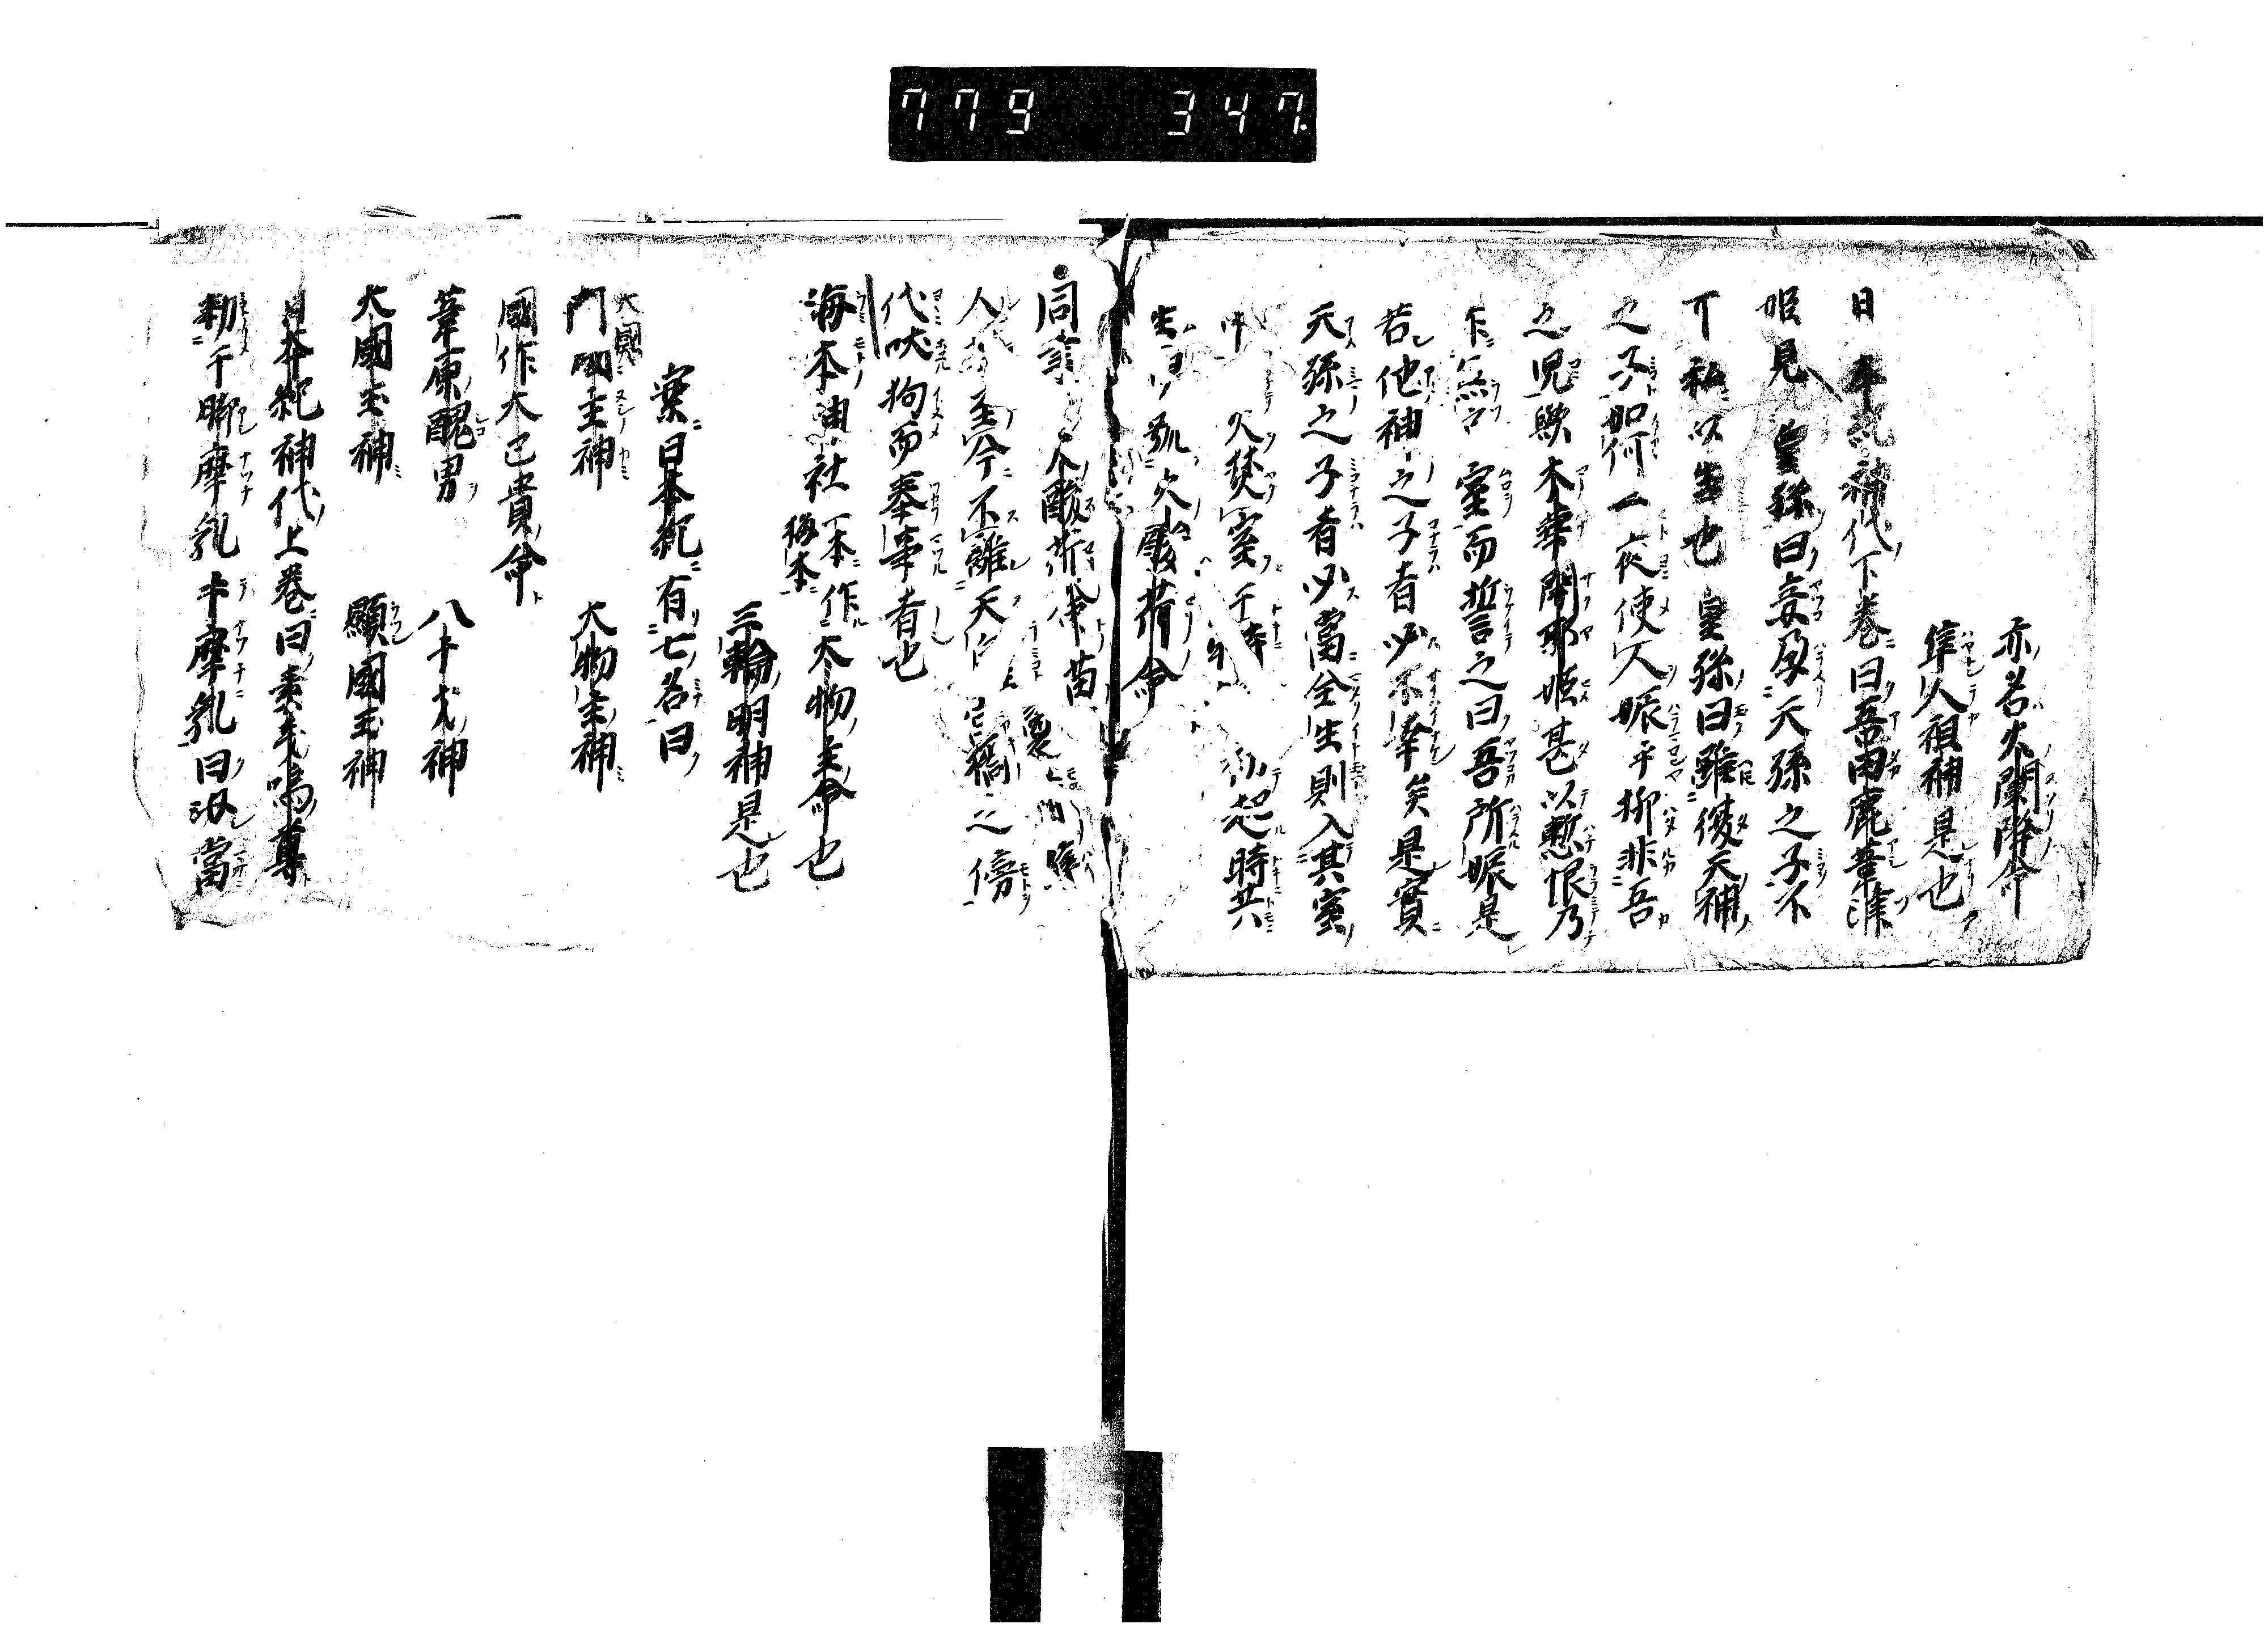 779 347
亦名火闌降命
隼人祖神是也
日本紀神代下卷曰吾田鹿葦津
姫見皇孫曰妾孕天孫之子不
可私以生也皇孫曰雖復天神
之子如何一夜使人娠乎抑非吾
之児歟木華開耶姫甚以慙恨乃
作無戸室而誓之曰吾所娠是
若他神之子者必不幸矣是實
天孫之子者必當全生則入其室
中 火焚室于時 起時共
生 号火酢芹命
同書 火酸芹命苗
人等至今不離天 墻之傍
代吠狗而奉事者也
海本神社一本作大物主命也
三輪明神是也
案日本紀有七名曰
大國
國主神 大物主神
國作大己貴命
葦原醜男 八十戈神
大國玉神 顯國玉神
日本紀神代上卷曰素戔嗚尊
勅于脚摩乳手摩乳曰汝當